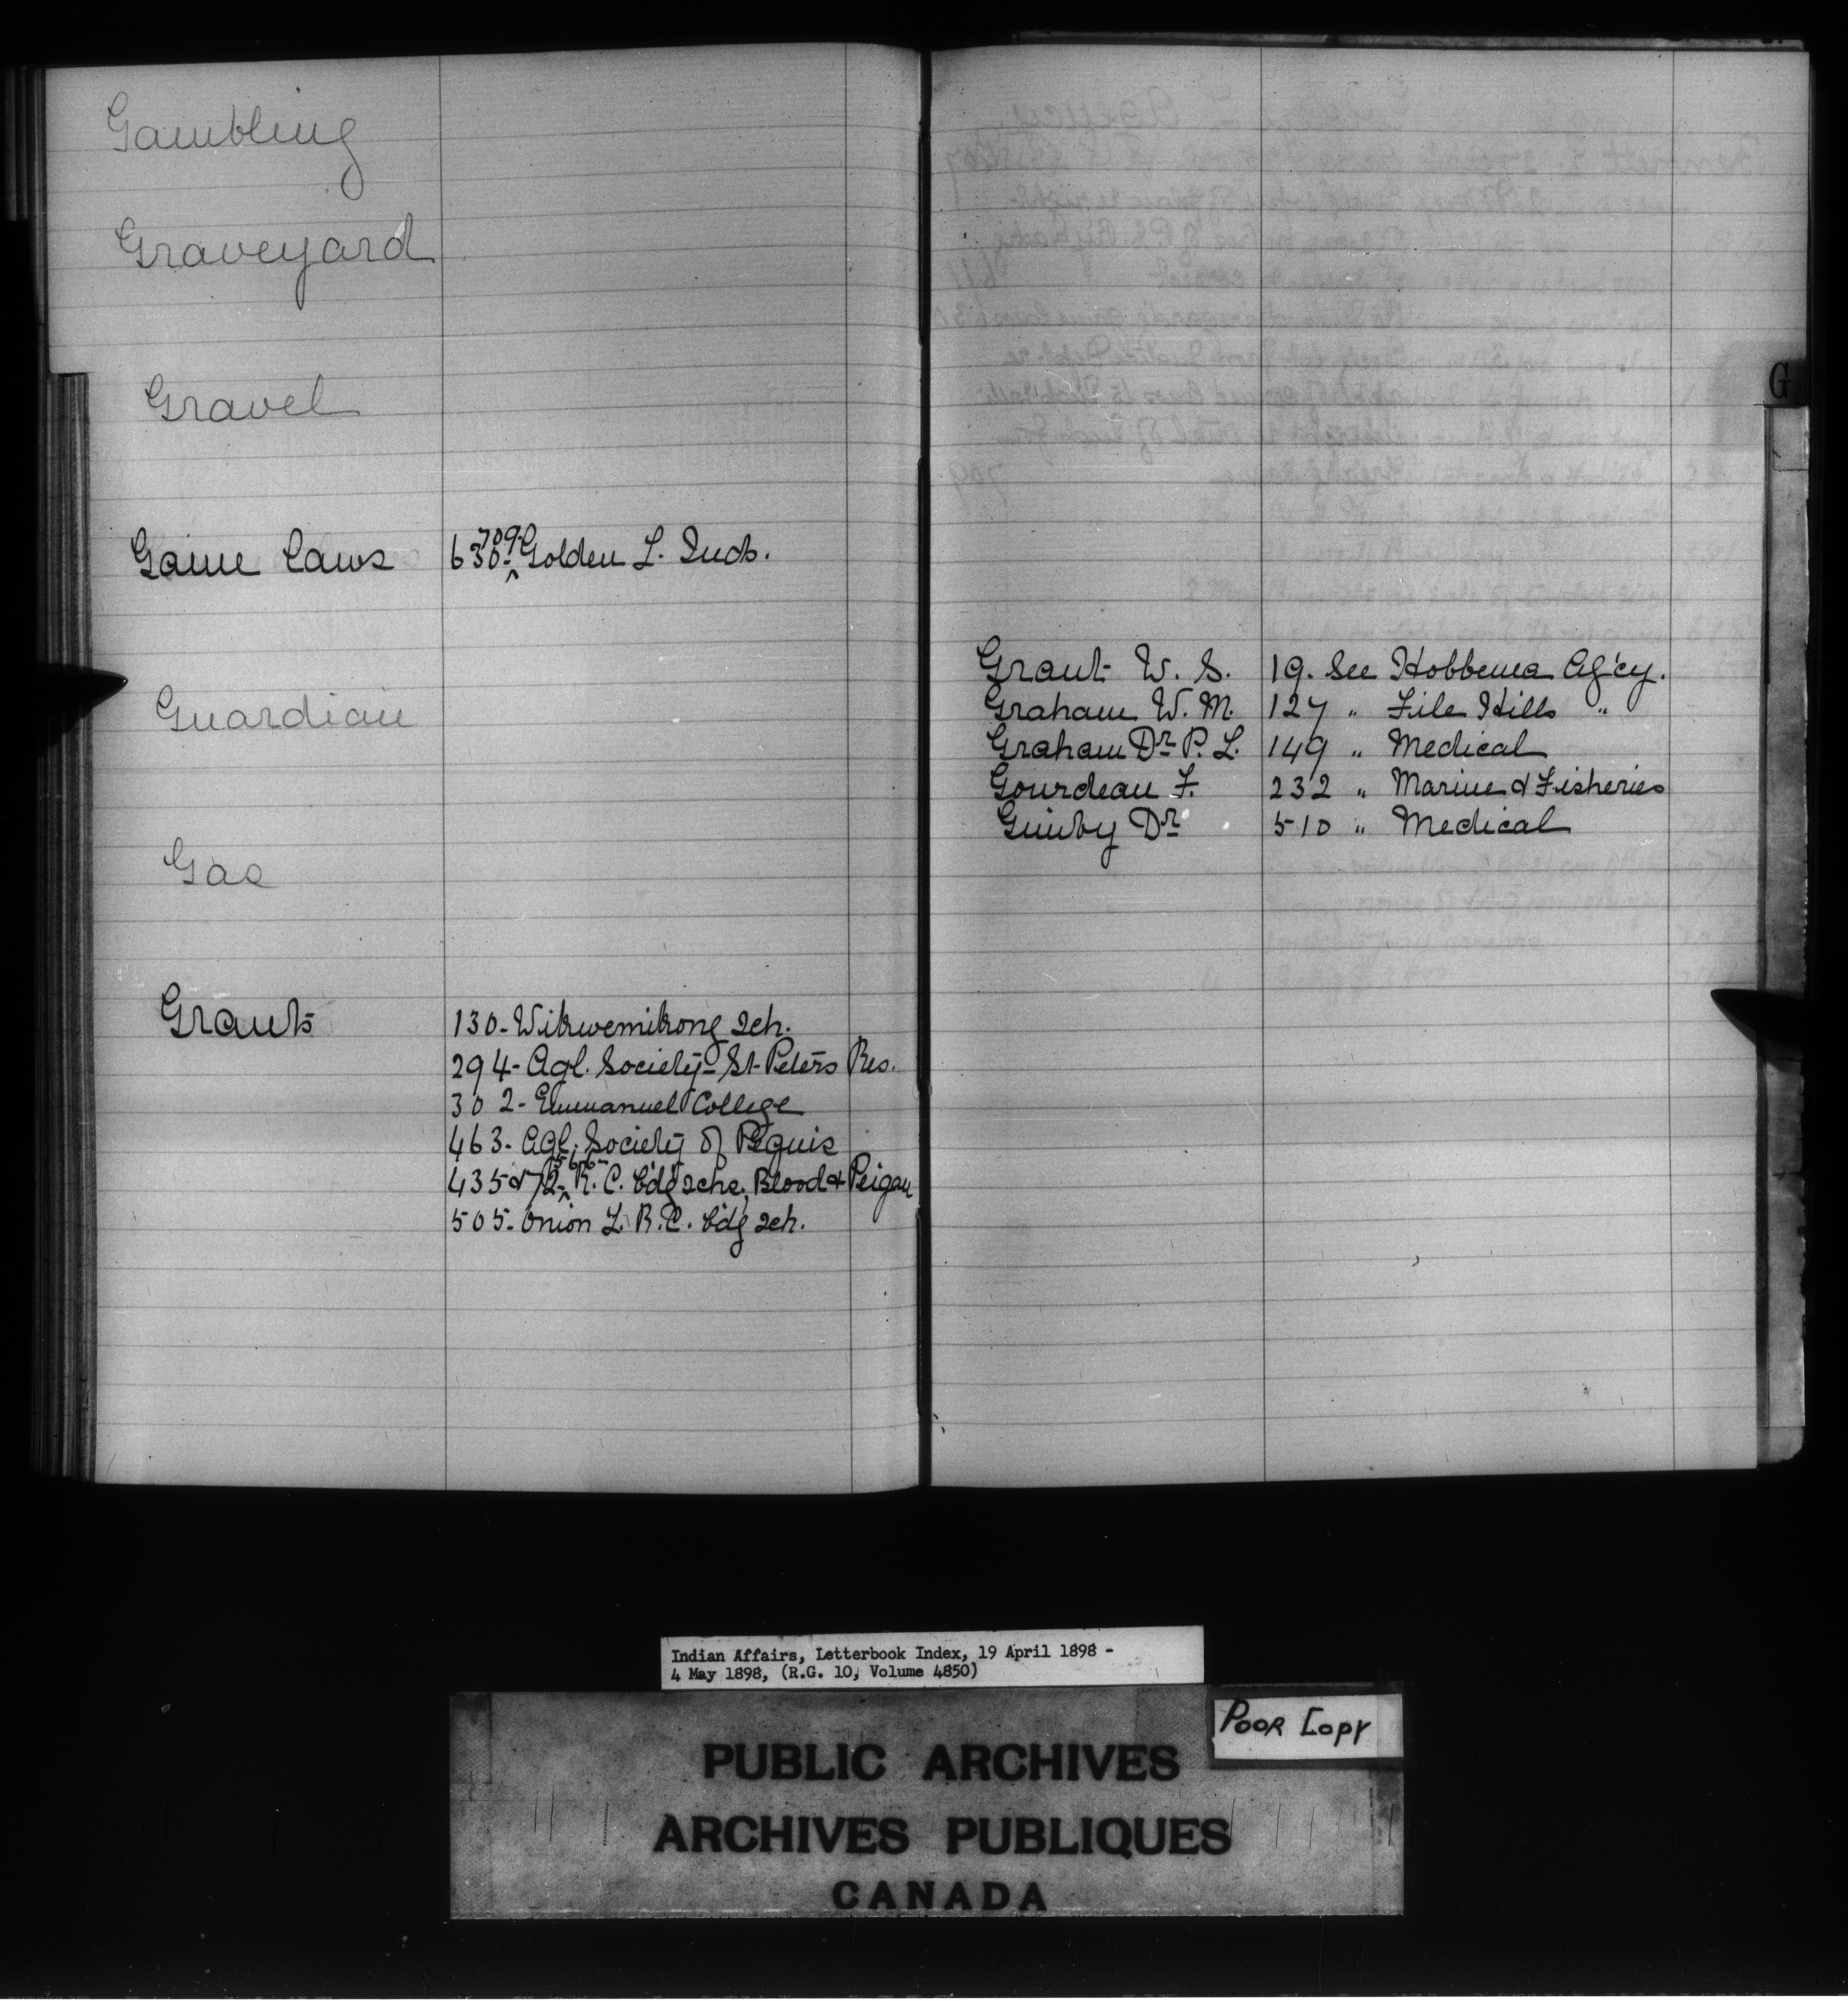 Gambling
Graveyard
Gravel
Game Laws 630-709-Golden L. Inds.
Guardian
Gas
Grants 130-Wikwemikong sch.
294-Agl. Society-St Peters Res.
302-Emmanuel College
463-Agl. Society of Peguis
435 & 72-566-R. C. b'd'g schs, Blood & Peigan
505-Onion L. R.C. b'd'g sch.
G
Grant W. S. 19. See Hobbema Ag'cy.
Graham W. M. 127 " File Hills "
Graham Dr P. L. 149 " Medical
Gourdeau F. 232 " Marine & Fisheries
Dr 510 " Medical
Indian Affairs, Letterbook Index, 19 April 1898 -
4 May 1898, (R.G. 10, Volume 4850)
POOR COPY
PUBLIC ARCHIVES
ARCHIVES PUBLIQUES
CANADA